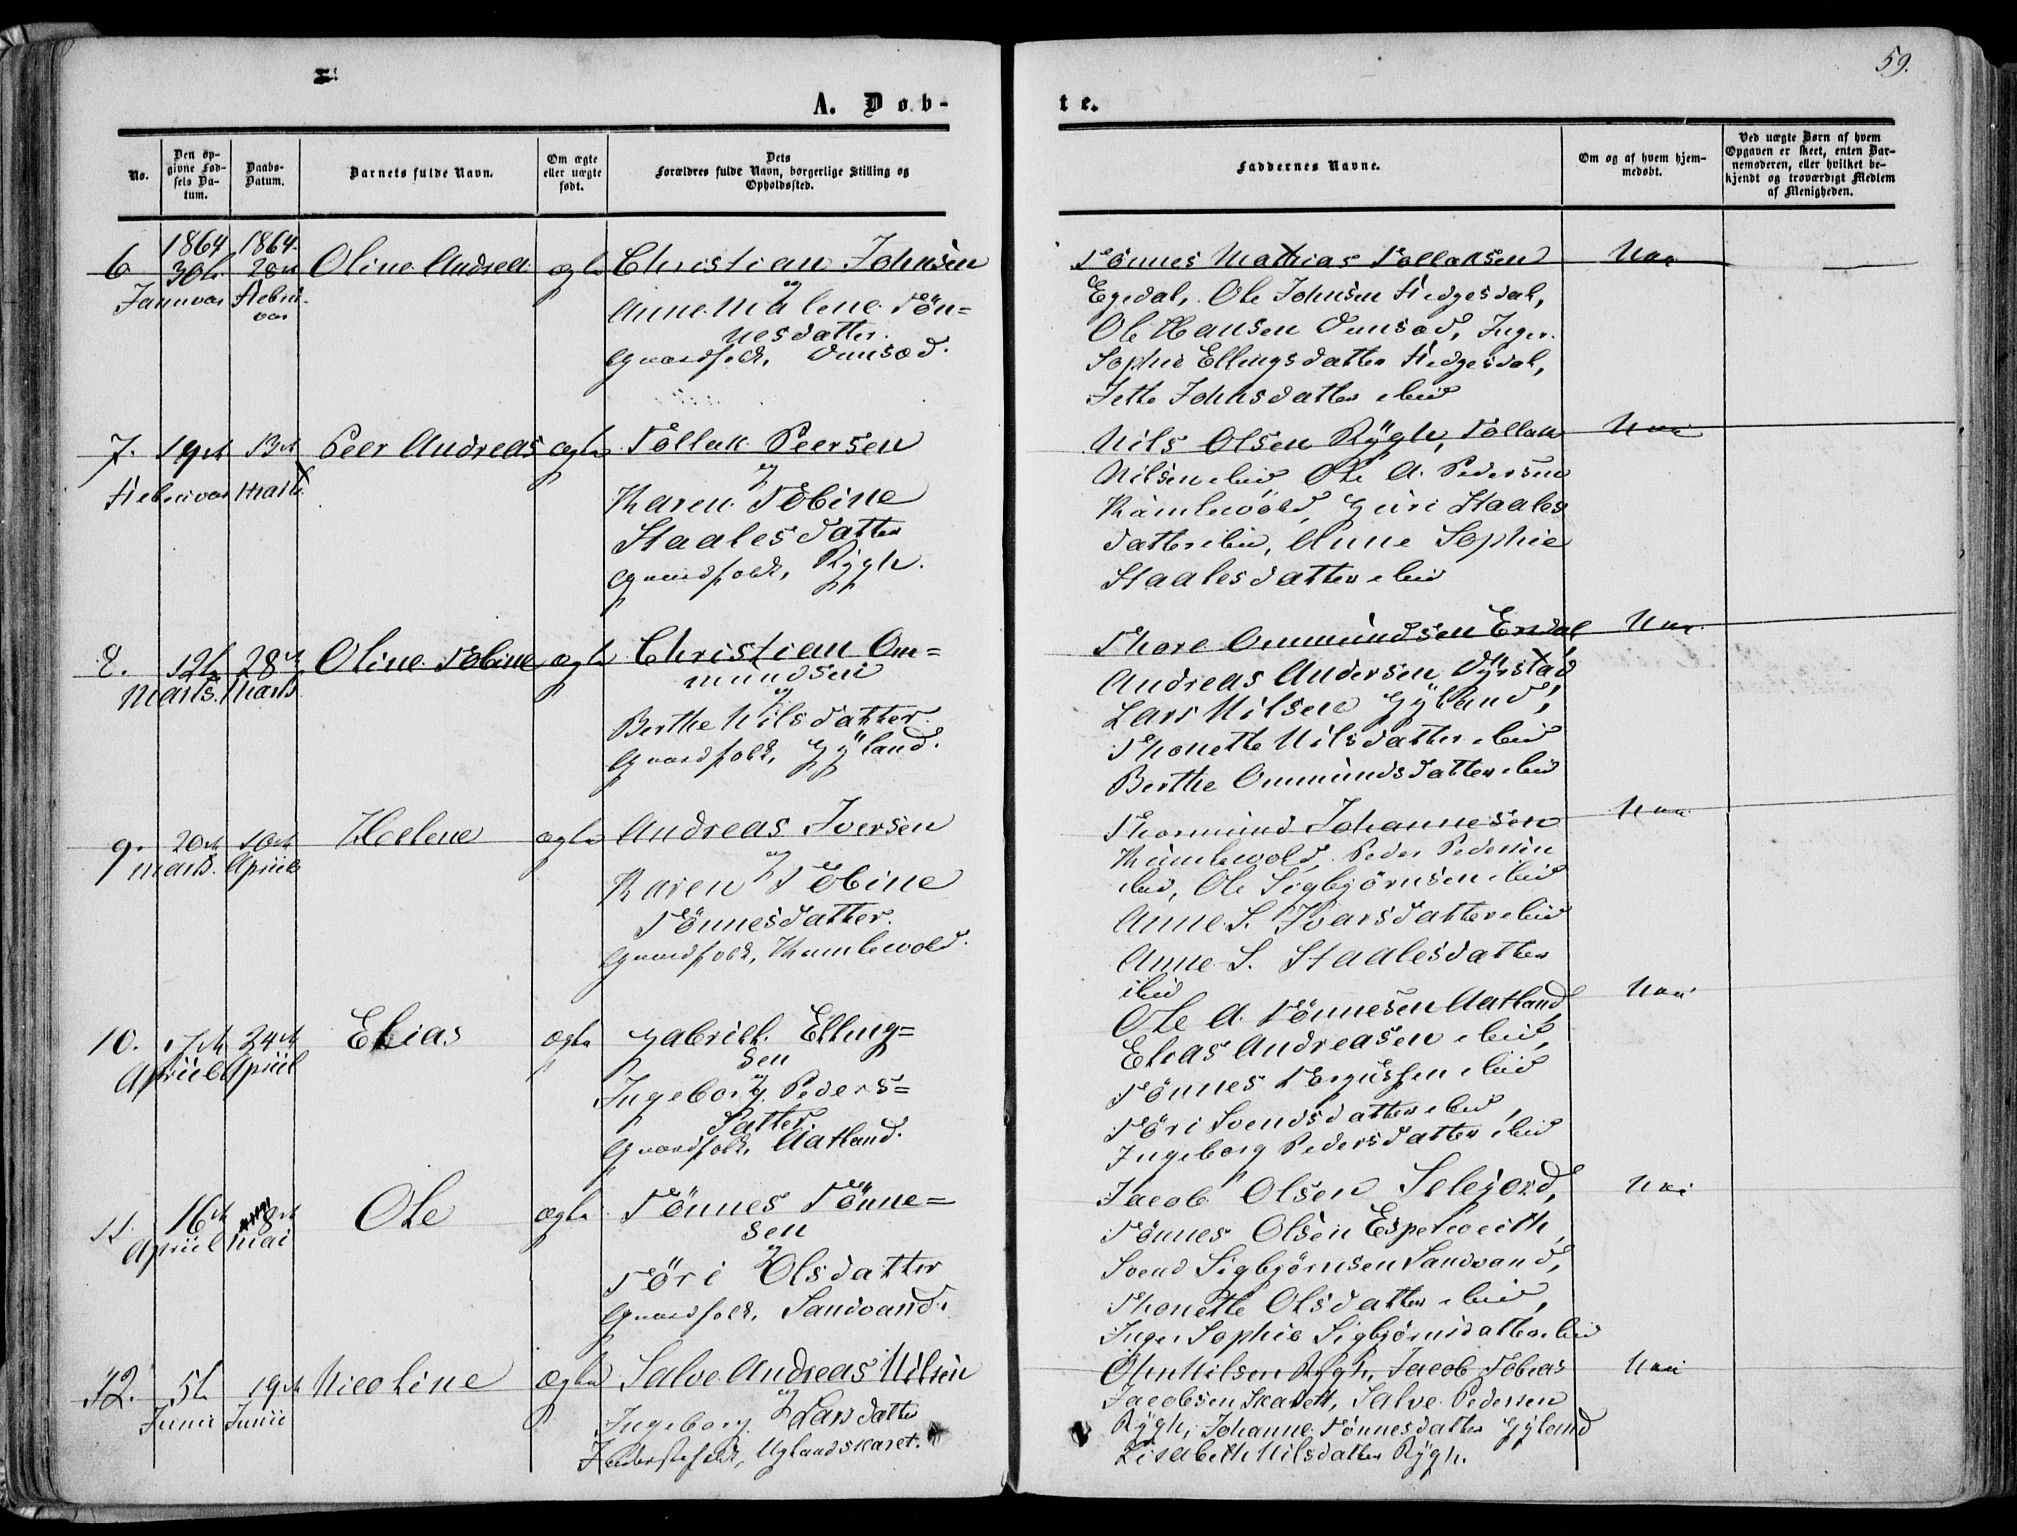 59.
A. Døb-
te.
No.
Den op-
givne Fød-
sels Da-
tum.
Daabs-
Datum.
Barnets fulde Navn.
Om ægte
eller uægte
født.
Dets
Forældres fulde Navn, borgerlige Stilling og
Opholdssted.
Faddernes Navne.
Om og af hvem hjem-
medøbt.
Ved uægte Børn af hvem
Opgaven er skeet, enten Bar-
nemoderen, eller hvilket be-
kjendt og troværdigt Medlem
af Menigheden.
1864 1864
6 30te 28de Oline Andrea ægte Christian Johnsen
Januar Februar
og
Anne Malene Tön=
nesdatter
Gaardfolk,
Tönnes Mathias Tollaksen Nei
Egedal, Ole Johnsen Fedgesdal,
Ole Hansen Inger
Sophie Ellingsdatter Fedgesdal,
Jette Johnsdatter ibid
7. 19de 13de Peer Andreas ægte Tollak Peersen
Februar Marts
og
Karen Tobine
Staalesdatter
Gaardfolk, Rÿgh.
Nils Olsen Rÿgh, Tollak Nei
Nilsen ibid Ole A. Pedersen
Kumlevold, Guri Staales
datter ibid, Anne Sophie
Staalesdatter ibid
8. 12te 28de Oline Tobine ægte Christian Om=
Marts. Marts
mundsen
og
Berthe Nilsdatter
Gaardfolk, Gÿland.
Thore Ommundsen Nei
Andreas Andersen
Lars Nilsen Gÿland,
Thonette Nilsdatter ibid
Berthe Ommundsdatter ibid
9. 20de 10de Helene ægte Andreas Iversen
Marts. Apriil
og
Karen Tobine
Tönnesdatter.
Gaardfolk, Kumlevold.
Thormund Johannesen Nei
Kumlevold, Peder Pedersen
ibid, Ole Sigbjörnsen ibid
Anne S. Ivarsdatter ibid
Anne S. Staalesdatter
ibid
10. 7de 24de Elias ægte Gabriel Elling=
Apriil Apriil
sen
og
Ingeborg Peders=
datter.
Gaardfolk, Aatland.
Ole A. Tönnesen Aatland, Nei
Elias Andreasen ibid,
Tönnes Tergussen ibid
Töri Svendsdatter ibid,
Ingeborg Pedersdatter ibid
11. 16de 8de Ole ægte Tönnes Tönne=
Apriil Mai
sen
og
Töri Olsdatter
Gaardfolk, Sandvand.
Jacob Olsen Selejord, Nei
Tönnes Olsen Espetweith,
Svend Sigbjörnsen Sandvand,
Thonette Olsdatter ibid,
Inger Sophie Sigbjörnsdatter ibid
12. 5te 19de Nicoline ægte Salve Andreas Nilsen
Junii Junii
og
Ingeborg Larsdatter
Uglandskaret.
Olen Nilsen Rÿgh, Jacob Tobias Nei
Jacobsen Skarett, Salve Pedersen
Rÿgh, Johanne Tönnesdatter Gÿland
Lisabeth Nilsdatter Rÿgh.